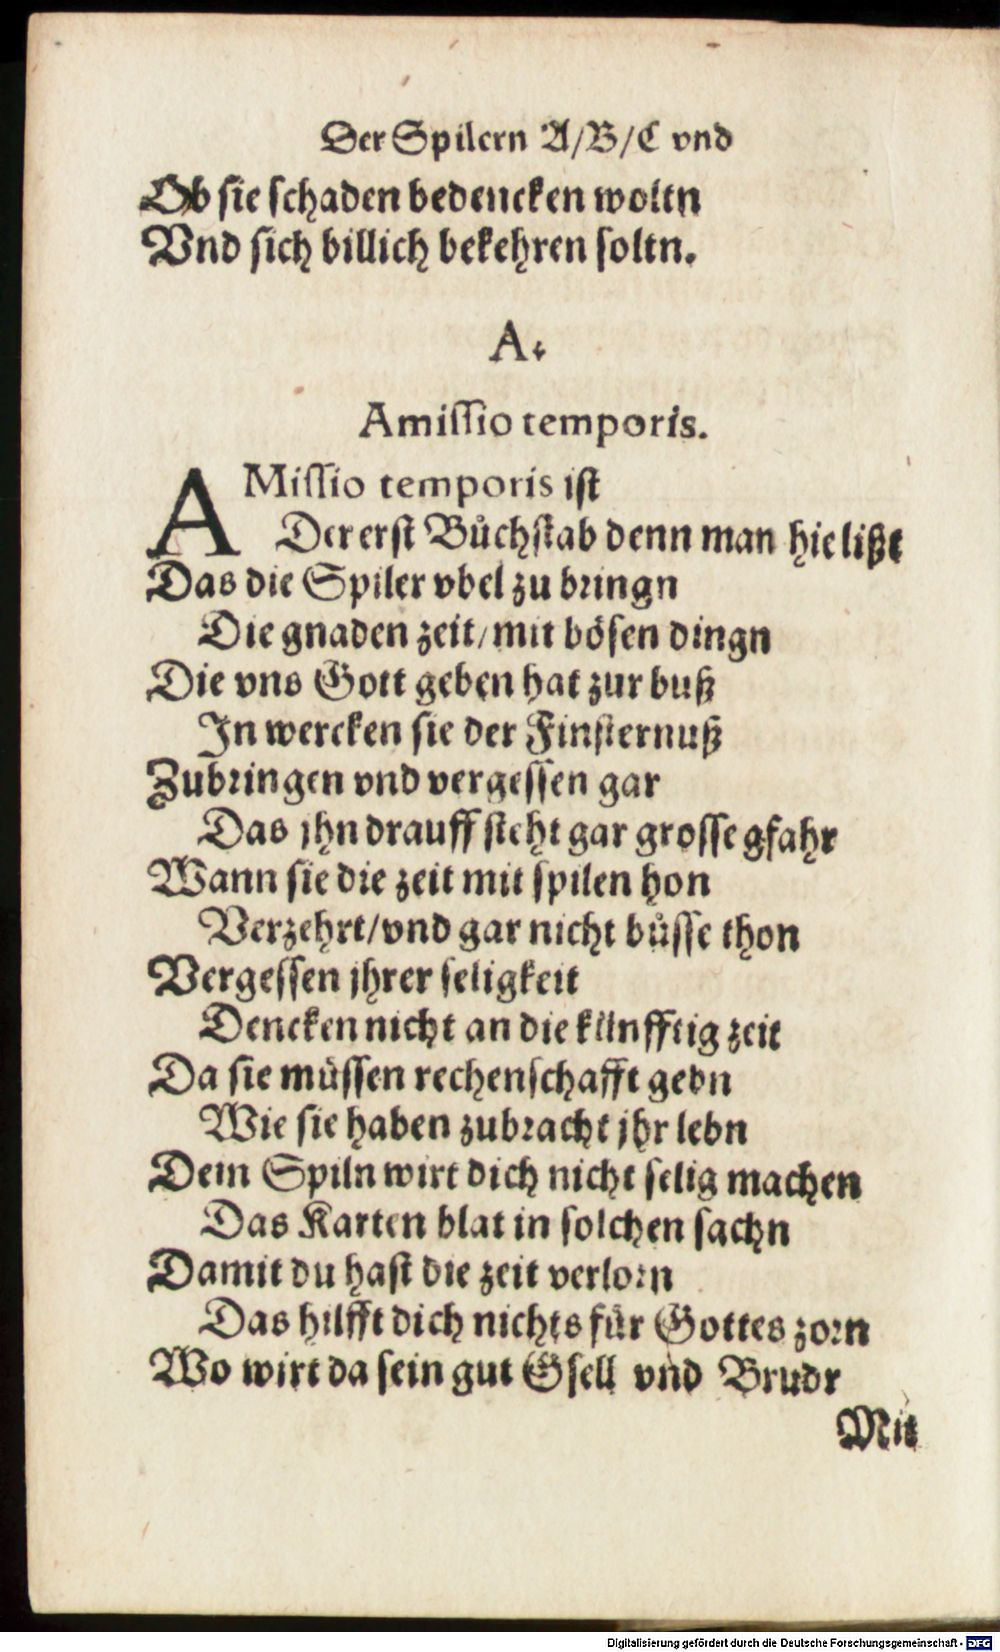 Der Spilern A/B/C vnd
Ob sie schaden bedencken woltn
Vnd sich billich bekehren soltn.
A.
Amissio temporis.
AMissio temporis ist
Der erst Bůchstab denn man hie lißt
Das die Spiler vbel zu bringn
Die gnaden zeit/ mit bösen dingn
Die vns Gott geben hat zur buß
In wercken sie der Finsternuß
Zubringen vnd vergessen gar
Das jhn drauff steht gar grosse gfahr
Wann sie die zeit mit spilen hon
Verzehrt/vnd gar nicht bůsse thon
Vergessen jhrer seligkeit
Dencken nicht an die künfftig zeit
Da sie müssen rechenschafft gebn
Wie sie haben zubracht jhr lebn
Dein Spiln wirt dich nicht selig machen
Das Karten blat in solchen sachn
Damit du hast die zeit verlorn
Das hilfft dich nichts für Gottes zorn
Wo wirt da sein gut Gsell vnd Brudr
Mit
Digitalisierung gefördert durch die Deutsche Forschungsgemeinschaft - DFG